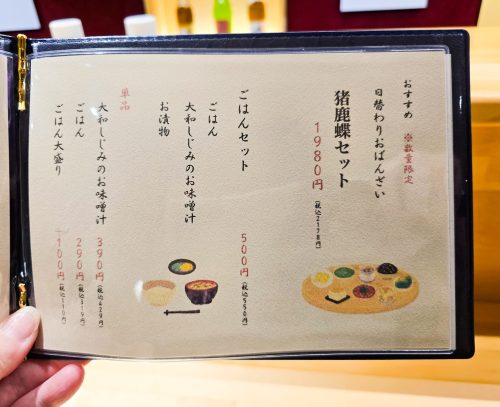 おすすめ ※数量限定
日替わりおばんざい
猪鹿蝶セット
1980円(税込2178円)
ごはんセット 500円(税込550円)
ごはん
大和しじみのお味噌汁
お漬物
単品
大和しじみのお味噌汁 390円(税込429円)
ごはん 290円(税込319円)
ごはん大盛り +100円(税込110円)